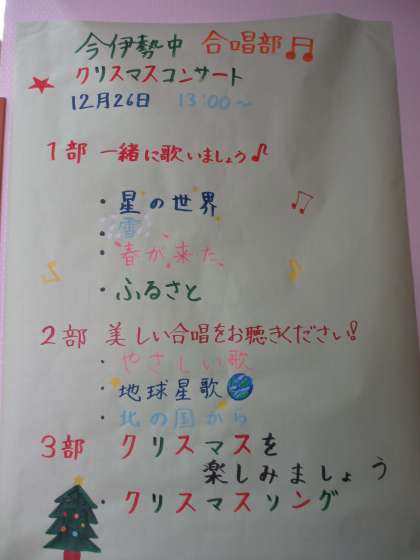 今伊勢中 合唱部♬
クリスマスコンサート
12月26日 13:00~
1部 一緒に歌いましょう♪
・星の世界
・雪
・春が来た
・ふるさと
2部 美しい合唱をお聴きください!
・やさしい歌
・地球星歌
・北の国から
3部 クリスマスを
楽しみましょう
・クリスマスソング